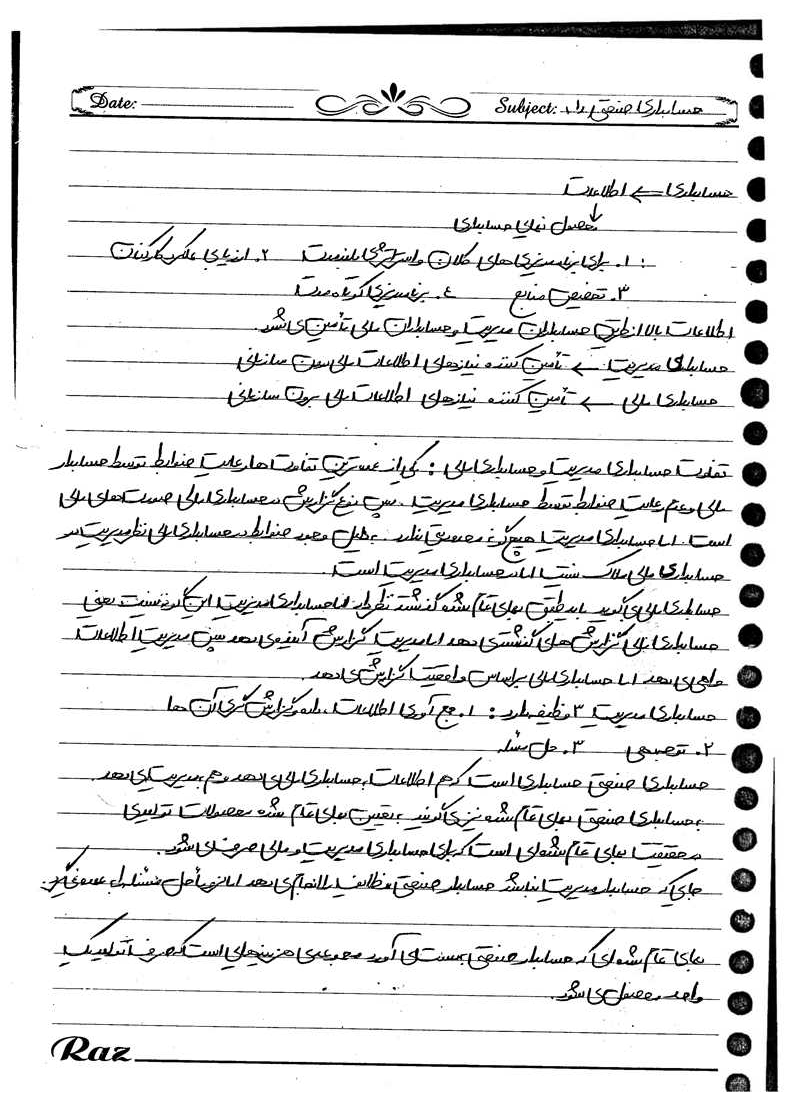 Date:
Subject: حسابداری صنعتی ۱
حسابداری ← اطلاعات
محصول نهایی حسابداری
: ۱. برای برنامه‌ریزی‌های کلان و استراتژی بلندمدت ۲. ارزیابی عملکرد کارکنان
۳. تخصیص منابع ۴. برنامه‌ریزی کوتاه مدت
اطلاعات بالا از طریق حسابداران مدیریت و حسابداران مالی تأمین می‌شود.
حسابداری مدیریت ← تأمین کننده نیازهای اطلاعات مالی درون سازمانی
حسابداری مالی ← تأمین کننده نیازهای اطلاعات مالی برون سازمانی
تفاوت حسابداری مدیریت و حسابداری مالی : یکی از عمده‌ترین تفاوت‌ها رعایت ضوابط توسط حسابدار
مالی و عدم رعایت ضوابط توسط حسابداری مدیریت. پس نوع گزارش در حسابداری مالی صورت‌های مالی
است. اما حسابداری مدیریت هیچ گونه محدودیتی ندارد. به دلیل وجود ضوابط در حسابداری مالی نظر مدیریت در
حسابداری مالی ملاک نیست اما در حسابداری مدیریت است.
حسابداری مالی می‌گوید باید طبق بهای تمام شده گذشته نگر اما حسابداری مدیریت این گونه نیست یعنی
حسابداری مالی گزارش‌های گذشته می‌دهد اما مدیریت گزارش آینده می‌دهد پس مدیریت اطلاعات
می‌دهد اما حسابداری مالی بر اساس واقعیت گزارش می‌دهد.
حسابداری مدیریت ۳ وظیفه دارد : ۱. جمع آوری اطلاعات و گزارش گری آن ها
۲. تصمیمی ۳. حل مسئله
حسابداری صنعتی حسابداری است که هم اطلاعات به حسابداری مالی می‌دهد و هم به مدیریت می‌دهد.
به حسابداری صنعتی بهای تمام شده نیز می‌گویند به تعیین بهای تمام شده محصولات تولیدی
در حقیقت بهای تمام شده‌ای است که برای حسابداری مدیریت و مالی صرف می‌شود.
جای که حسابدار مدیریت نباشد حسابدار صنعتی وظایف را انجام می‌دهد اما حل مسئله را به عهده نمی‌گیرد.
بهای تمام شده‌ای که حسابدار صنعتی بدست می‌آورد مجموعه‌ی هزینه‌هایی است که صرف تولید یک
واحد محصول می‌شود.
Raz